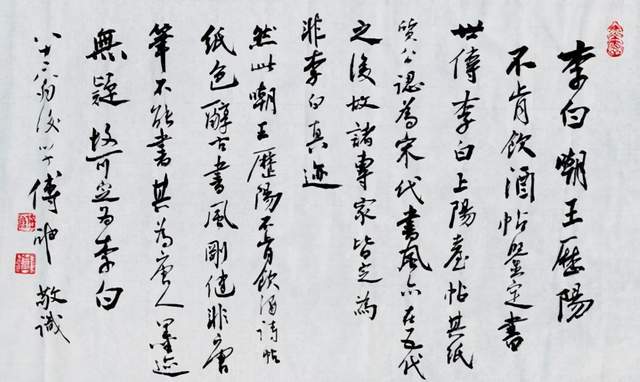 李白嘲王歷陽
不肯飲酒帖鑒定書
世傳李白上陽臺帖其紙
質公認為宋代書風亦在五代
之後故諸專家皆定為
非李白真迹
然此嘲王歷陽不肯飲酒詩帖
紙色古書風剛健非唐
筆不能書其為唐人墨迹
無疑故可定為李白
後學傅申敬識